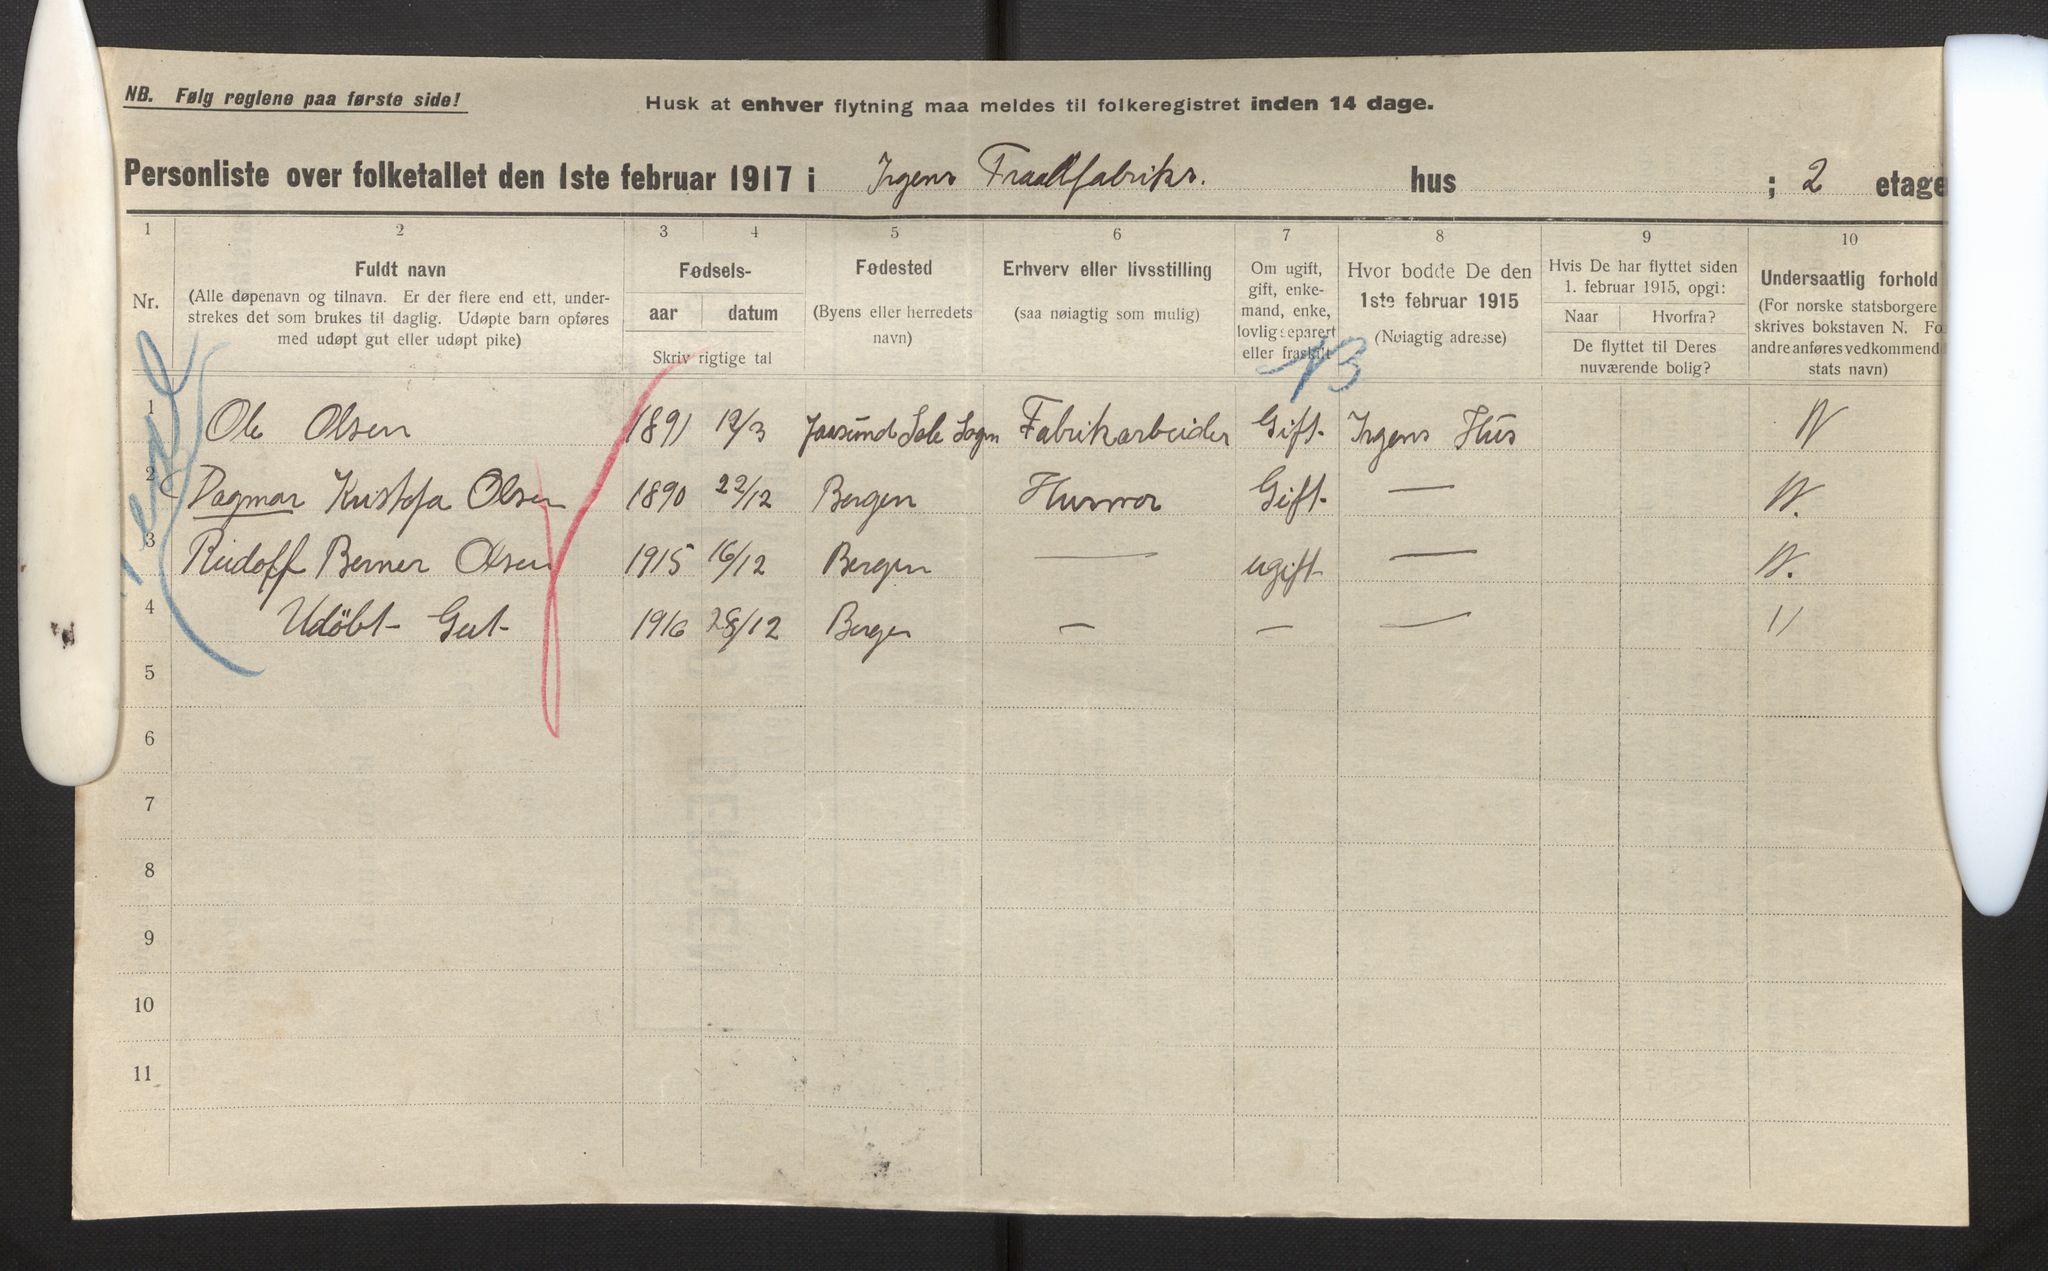 NB. Følg reglene paa første side!
Husk at enhver flytning maa meldes til folkeregistret inden 14 dage.
Personliste over folketallet den 1ste februar 1917 i Irgens Traadfabriks. hus ; 2 etage
1 2 3 4 5 6 7 8 9 10
Nr.
Fuldt navn
(Alle døpenavn og tilnavn. Er der flere end ett, under-
strekes det som brukes til daglig. Udøpte barn opføres
med udøpt gut eller udøpt pike)
Fødsels-
aar datum
Skriv rigtige tal
Fødested
(Byens eller herredets
navn)
Erhverv eller livsstilling
(saa nøiagtig som mulig)
Om ugift,
gift, enke-
mand, enke,
lovlig separert
eller fraskilt
Hvor bodde De den
1ste februar 1915
(Nøiagtig adresse)
Hvis De har flyttet siden
1. februar 1915, opgi:
Naar Hvorfra?
De flyttet til Deres
nuværende bolig?
Undersaatlig forhold
(For norske statsborgere
skrives bokstaven N. Fo
andre anføres vedkommend
stats navn)
13
1 Ole Olsen 1891 12/3 Jaasund Sole Sogn Fabrikarbeider Gift. Irgens Hus N
2 Dagmar Kristofa Olsen 1890 22/12 Bergen Husmor Gift. — N.
3 Rudolf Berner Olsen 1915 16/12 Bergen — ugift — N.
4 Udöbt Gut 1916 28/12 Bergen — — — 11
5
6
7
8
9
10
11